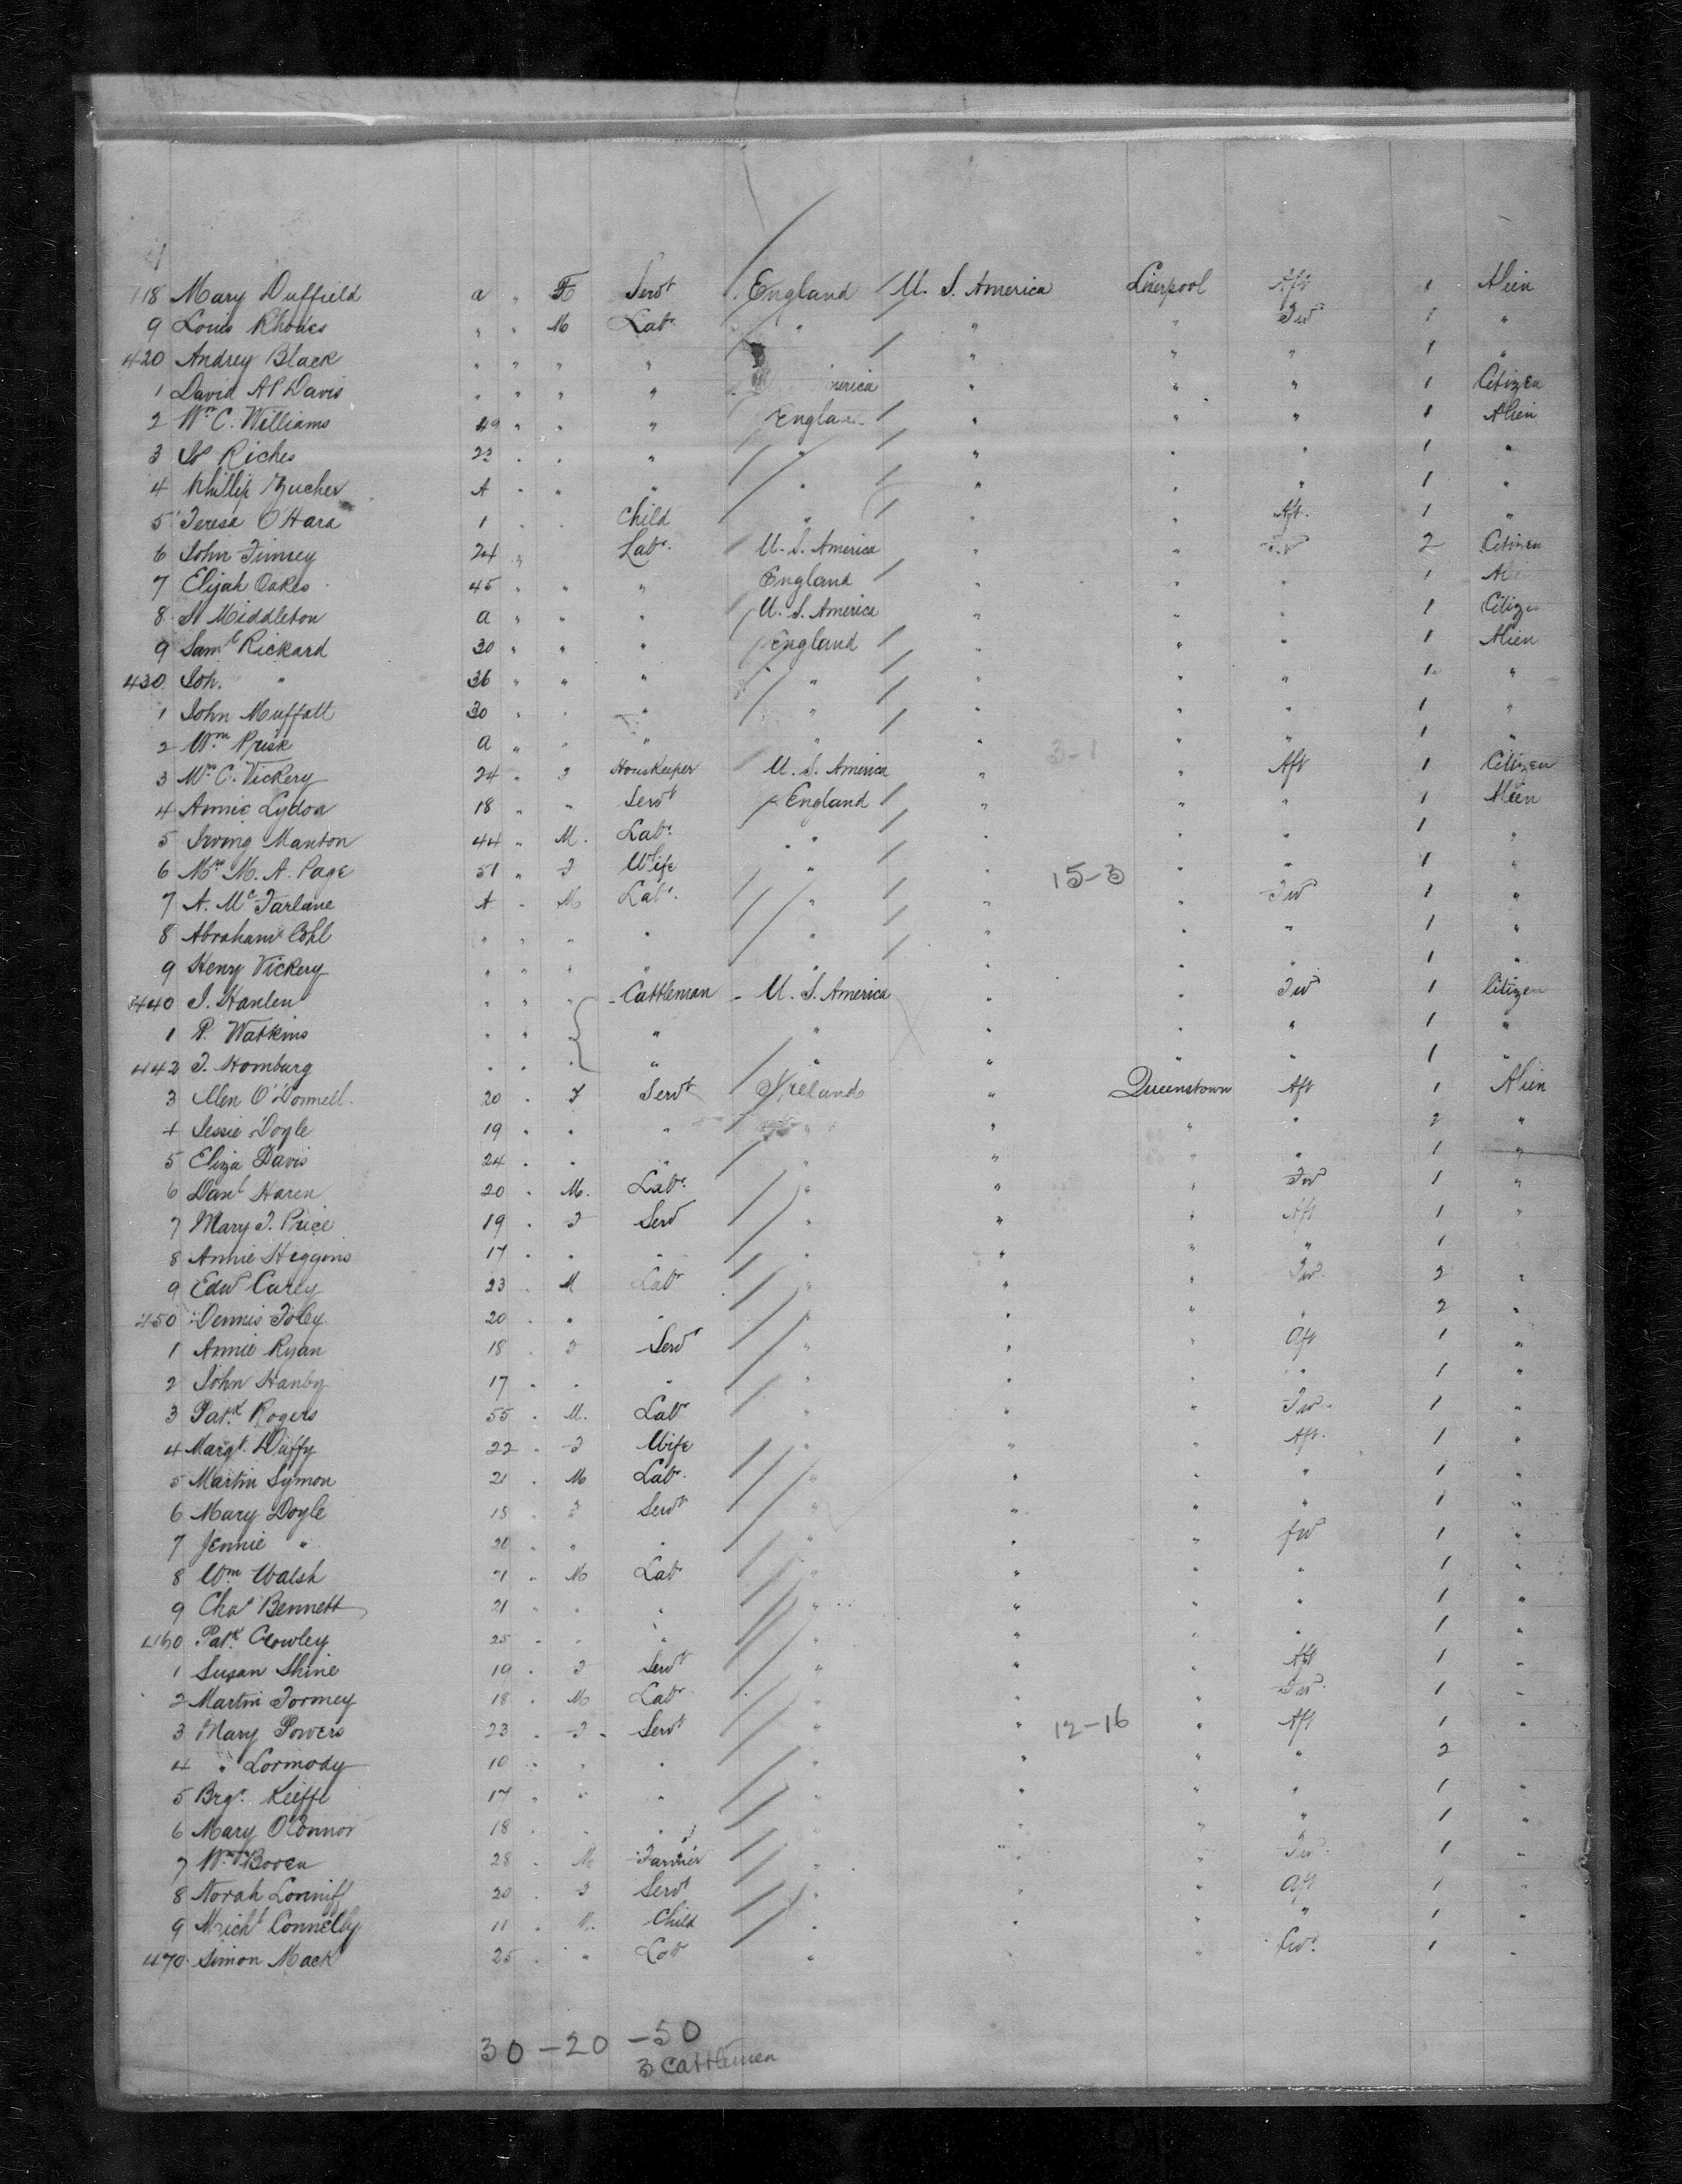 418 Mary Duffield a " F Servt England U. S. America Liverpool Aft 1 Alien
9 Louis Rhodes " " M Labr " " " Fwd 1 "
420 Andrey Black " " " " " " " 1 "
1 David A Davis " " " " America " " " 1 Citizen
2 Wm C. Williams 49 " " " England " " " 1 Alien
3 Js Riches 23 " " " " " " " 1 "
4 Phillip Zucher A " " " " " " " 1 "
5 Teresa O'Hara 1 " " Child " " " Aft. 1 "
6 John Finney 24 " Labr. U. S. America " " Fwd 2 Citizen
7 Elijah Oakes 45 " " " England " " " 1 Alien
8 Middleton a " " " U. S. America " " " 1 Citizen
9 Saml Rickard 30 " " " England " " " 1 Alien
430 Joh. " 36 " " " " " " " 1 "
1 John Muffatt 30 " " " " " " " 1 "
2 Wm Prisk a " " " " " " " 1 "
3 C. Vickery 24 " F Houskeeper U. S. America " 3-1 " Aft 1 Citizen
4 Annie Lydon 18 " " Servt England " " " 1 Alien
5 Irving Manton 44 " M. Labr. " " " " 1 "
6 Mrs M. A. Page 51 " F Wife " " 15-3 " " 1 "
7 A. McFarlane A " M Labr. " " " Fwd 1 "
8 Abraham Cohl " " " " " " " " 1 "
9 Henry Vickery " " " " " " " " 1 "
440 J. Hanlen " " " Cattleman U. S. America " " Fwd 1 Citizen
1 P. Watkins " " " " " " " " 1 "
442 J. Homburg " " " " " " " " 1 "
3 Ellen O'Donnell 20 " F Servt Ireland " Queenstown Aft 1 Alien
4 Jessie Doyle 19 " " " " " " " 2 "
5 Eliza Davis 24 " " " " " " " 1 "
6 Danl Haren 20 " M. Labr. " " " Fwd 1 "
7 Mary J. Price 19 " F Serv " " " Aft 1 "
8 Annie Heggins 17 " " " " " " " 1 "
9 Edwd Carey 23 " M Labr " " " Fwd. 2 "
450 Dennis Foley 20 " " " " " " " 2 "
1 Annie Ryan 18 " F Servt " " " Aft 1 "
2 John Hanby 17 " " " " " " " 1 "
3 Patk Rogers 55 " M. Labr " " " Fwd. 1 "
4 Margt. Duffy 22 " F Wife " " " Aft. 1 "
5 Martin Symon 21 " M Labr. " " " " 1 "
6 Mary Doyle 18 " F Servt " " " " 1 "
7 Jennie " 20 " " " " " " fwd 1 "
8 Wm Walsh 21 " M Labr " " " " 1 "
9 Chas Bennett 21 " " " " " " " 1 "
460 Patk Crowley 25 " " " " " " " 1 "
1 Susan Shine 19 " F Servt " " " Aft 1 "
2 Martin Tormey 18 " M Labr " " " Fwd. 1 "
3 Mary Powers 23 " F Servt " " 12-16 " Aft 1 "
4 " Lormody 10 " " " " " " " 2
5 Brgt. Keiffe 17 " " " " " " " 1 "
6 Mary O'Connor 18 " " " " " " " 1 "
7 Wm Boven 28 " M Farmer " " " Fwd. 1 "
8 Norah Lonniff 20 " F Servt " " " Aft 1 "
9 Michl Connelly 11 " M. Child " " " " 1 "
470 Simon Mack 25 " " Labr " " " fwd. 1 "
30 - 20 - 50
3 Cattlemen